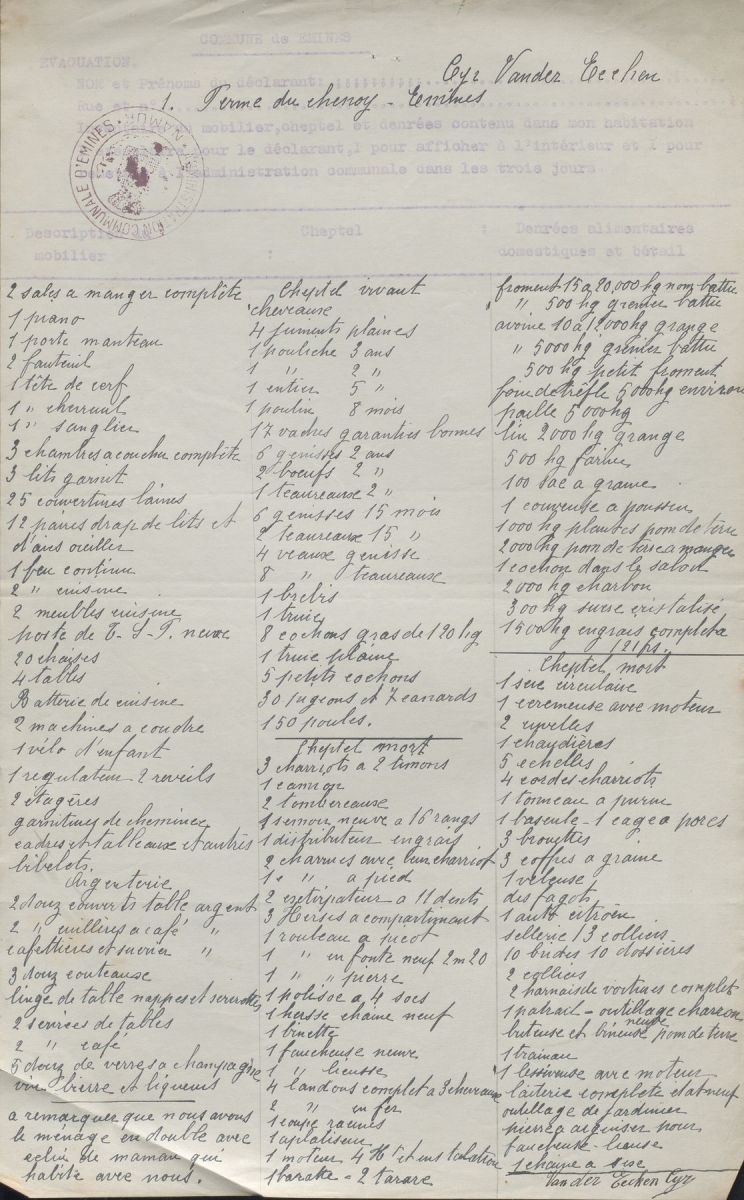 COMMUNE de EMINES
EVACUATION.
NOM et Prénoms du déclarant: Cyr Vander Eecken
Rue et n° 1. Ferme du chenoy - Emines
mobilier, cheptel et denrées contenu dans mon habitation
pour le déclarant, I pour afficher à l'intérieur et I pour
à l'administration communale dans les trois jours
ADMINISTRATION COMMUNALE D'EMINES
NAMUR
Description
mobilier
2 sales a manger complête
1 piano
1 porte manteau
2 fauteuil
1 tête de cerf
1 " chevreuil
1 " sanglier
3 chambres a coucher complête
3 lits garnit
25 couvertines laines
12 paires drap de lits et
d'aies oreiller
1 feu continu
2 " cuisine
2 meubles cuisine
poste de T-S-F. neuve
20 chaises
4 tables
Batterie de cuisine
2 machines a coudre
1 vélo d'enfant
1 regulateur 2 reveils
2 etagères
garnitures de cheminee
cadres et tableaux et autres
bibelets.
Argenterie
2 douz couverts table argent
2 " cuillères a café "
cafettières et sucrier "
3 douz couteaux
linge de table nappes et serviettes
2 services de tables
2 " café
5 douz de verres a champagne
vin bierre et liqueurs
a remarquer que nous avons
le ménage en double avec
celui de maman qui
habite avec nous.
Cheptel
Cheptel vivant
cheveaux
4 juments plaines
1 pouliche 3 ans
1 " 2 "
1 entier 5 "
1 poulin 8 mois
17 vaches garanties bonnes
6 genisses 2 ans
2 boeufs 2 "
1 teaureaux 2 "
6 genisses 15 mois
2 teaureaux 15 "
4 veaux genisse
8 " teaureaux
1 brebis
1 truie
8 cochons gras de 120 kg
1 truie plaine
5 petits cochons
30 pigeons et 7 canards
150 poules.
Cheptel mort
3 charriots a 2 timons
1 camion
2 tombereaux
1 semoir neuve a 16 rangs
1 distributeur engrais
2 charrues avec leur charriot
1 " a pied
2 extirpateur a 11 dents
3 Herses a compartimant
1 rouleau a picot
1 " en fonte neuf 2m20
1 " " pierre
1 polisoc a 4 socs
1 hersse chaine neuf
1 binette
1 faucheuse neuve
1 " lieusse
4 landons complet a 3 chevaux
2 " en fer
1 coupe racines
1 aplatiseur
1 moteur 4 Ht et ins talation
1 baratte - 2 tarare
Denrées alimentaires
domestiques et bétail
froment 15 a 20,000 kg non battu
" 500 kg grenier battu
avoine 10 a 12000 kg grange
" 5000 kg grenier battu
500 kg petit froment
foin de trêfle 5000 kg environ
paille 5000 kg
lin 2000 kg grange
500 kg farine
100 sac a graine
1 couveuse a poussin
1000 kg plantes pom de terre
2000 kg pom de terre a manger
1 cochon dans le saloir
2000 kg charbon
300 kg sucre cristalisé
1500 kg engrais complet a
121 frs.
Cheptel mort
1 scie circulaire
1 ecremeuse avec moteur
2
1 chaudières
5 echelles
4 cordes charriots
1 tonneau a purin
1 bascule - 1 cage a porcs
3 brouettes
3 coffres a graine
1 vêleuse
des fagots
1 auto citroën
sellerie 13 colliers
10 brides 10 dossières
2 colliers
2 harnais de voitures complet
1 patrail - outillage charron
buteuse et bineuse neuve pom de terre
1 trainau
1 lessiveuse avec moteur
laiterie complête etat neuf
outillage de jardinier
pierre a aiguiser pour
faucheuse - lieuse
1 chaine a
Vander Eecken Cyr